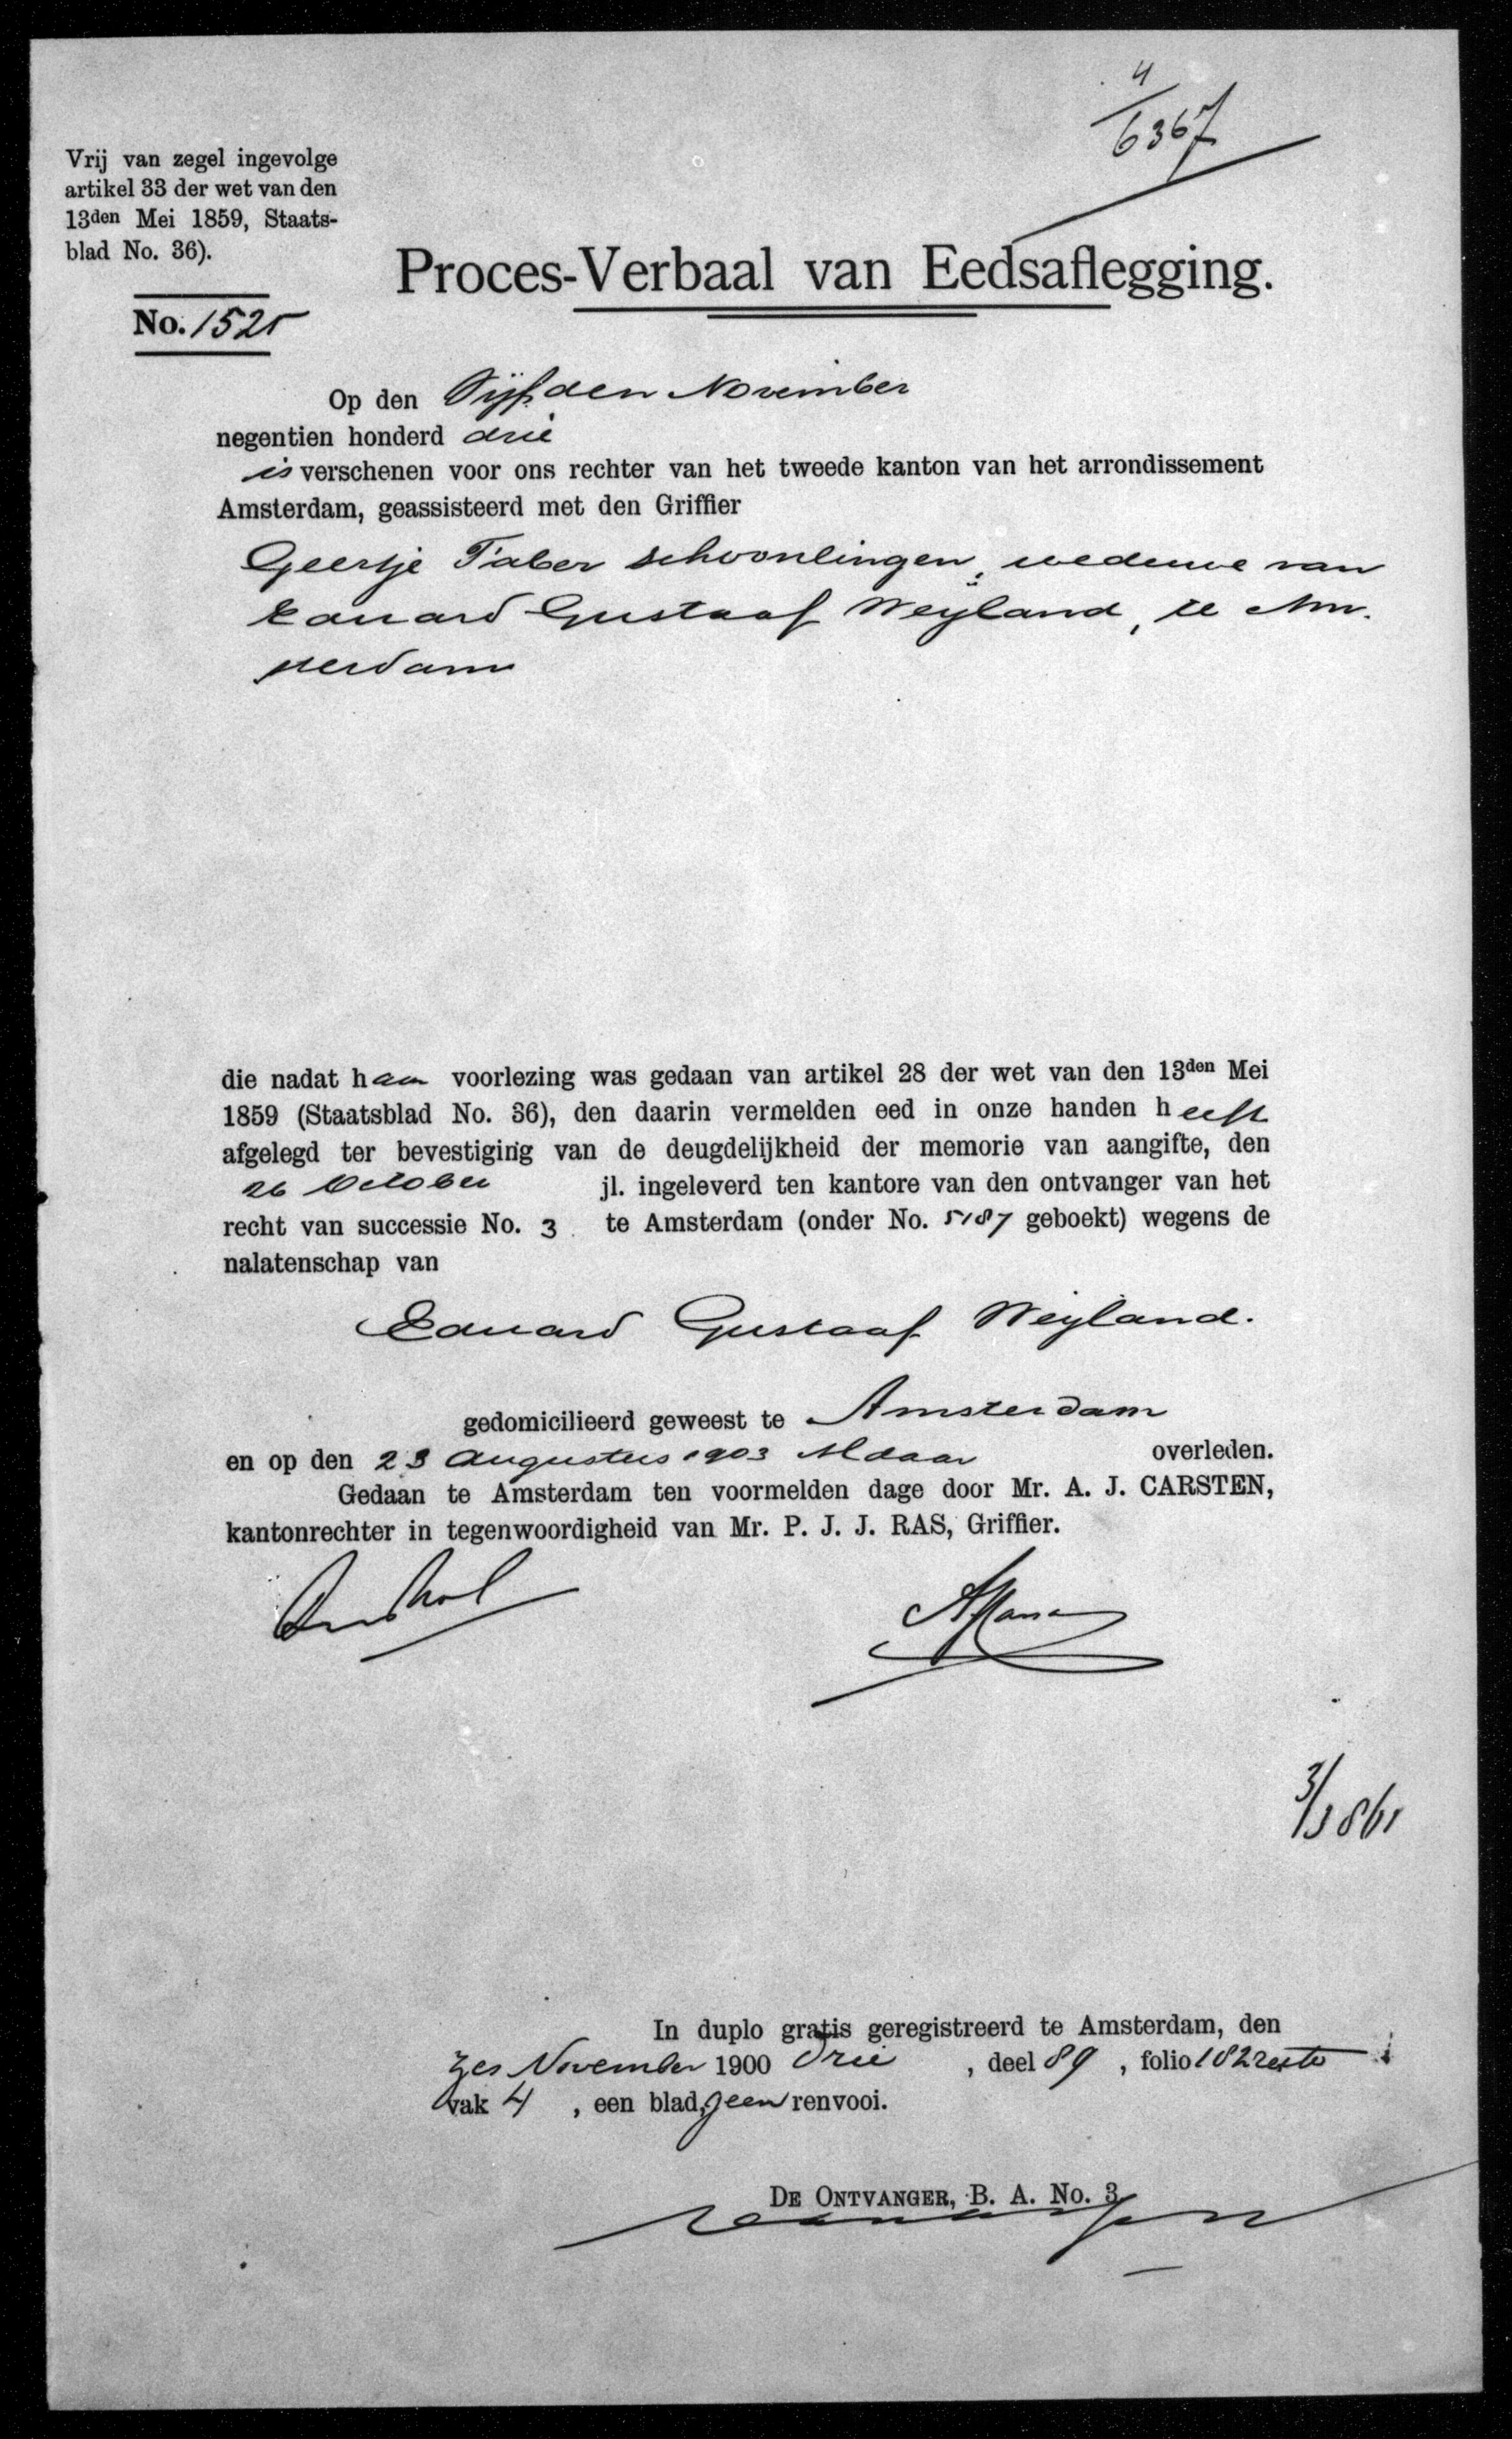 4
6367
Vrij van zegel ingevolge
artikel 33 der wet van den
13den Mei 1859, Staats-
blad No. 36).
Proces-Verbaal van Eedsaflegging.
No. 1525
Op den Vijfden November
negentien honderd drie
is verschenen voor ons rechter van het tweede kanton van het arrondissement
Amsterdam, geassisteerd met den Griffier
Geertje Taber Schoonlingen, weduwe van
Eduard Gustaaf Weyland, te Am-
sterdam
die nadat haar voorlezing was gedaan van artikel 28 der wet van den 13den Mei
1859 (Staatsblad No. 36), den daarin vermelden eed in onze handen heeft
afgelegd ter bevestiging van de deugdelijkheid der memorie van aangifte, den
26 October jl. ingeleverd ten kantore van den ontvanger van het
recht van successie No. 3 te Amsterdam (onder No. 5187 geboekt) wegens de
nalatenschap van
Eduard Gustaaf Weyland.
gedomicilieerd geweest te Amsterdam
en op den 23 Augustus 1903 Aldaar overleden.
Gedaan te Amsterdam ten voormelden dage door Mr. A. J. CARSTEN,
kantonrechter in tegenwoordigheid van Mr. P. J. J. RAS, Griffier.
In duplo gratis geregistreerd te Amsterdam, den
zes November 1900 drie , deel 89 , folio 182 recto
vak 4 , een blad, geen renvooi.
DE ONTVANGER, B. A. No. 3